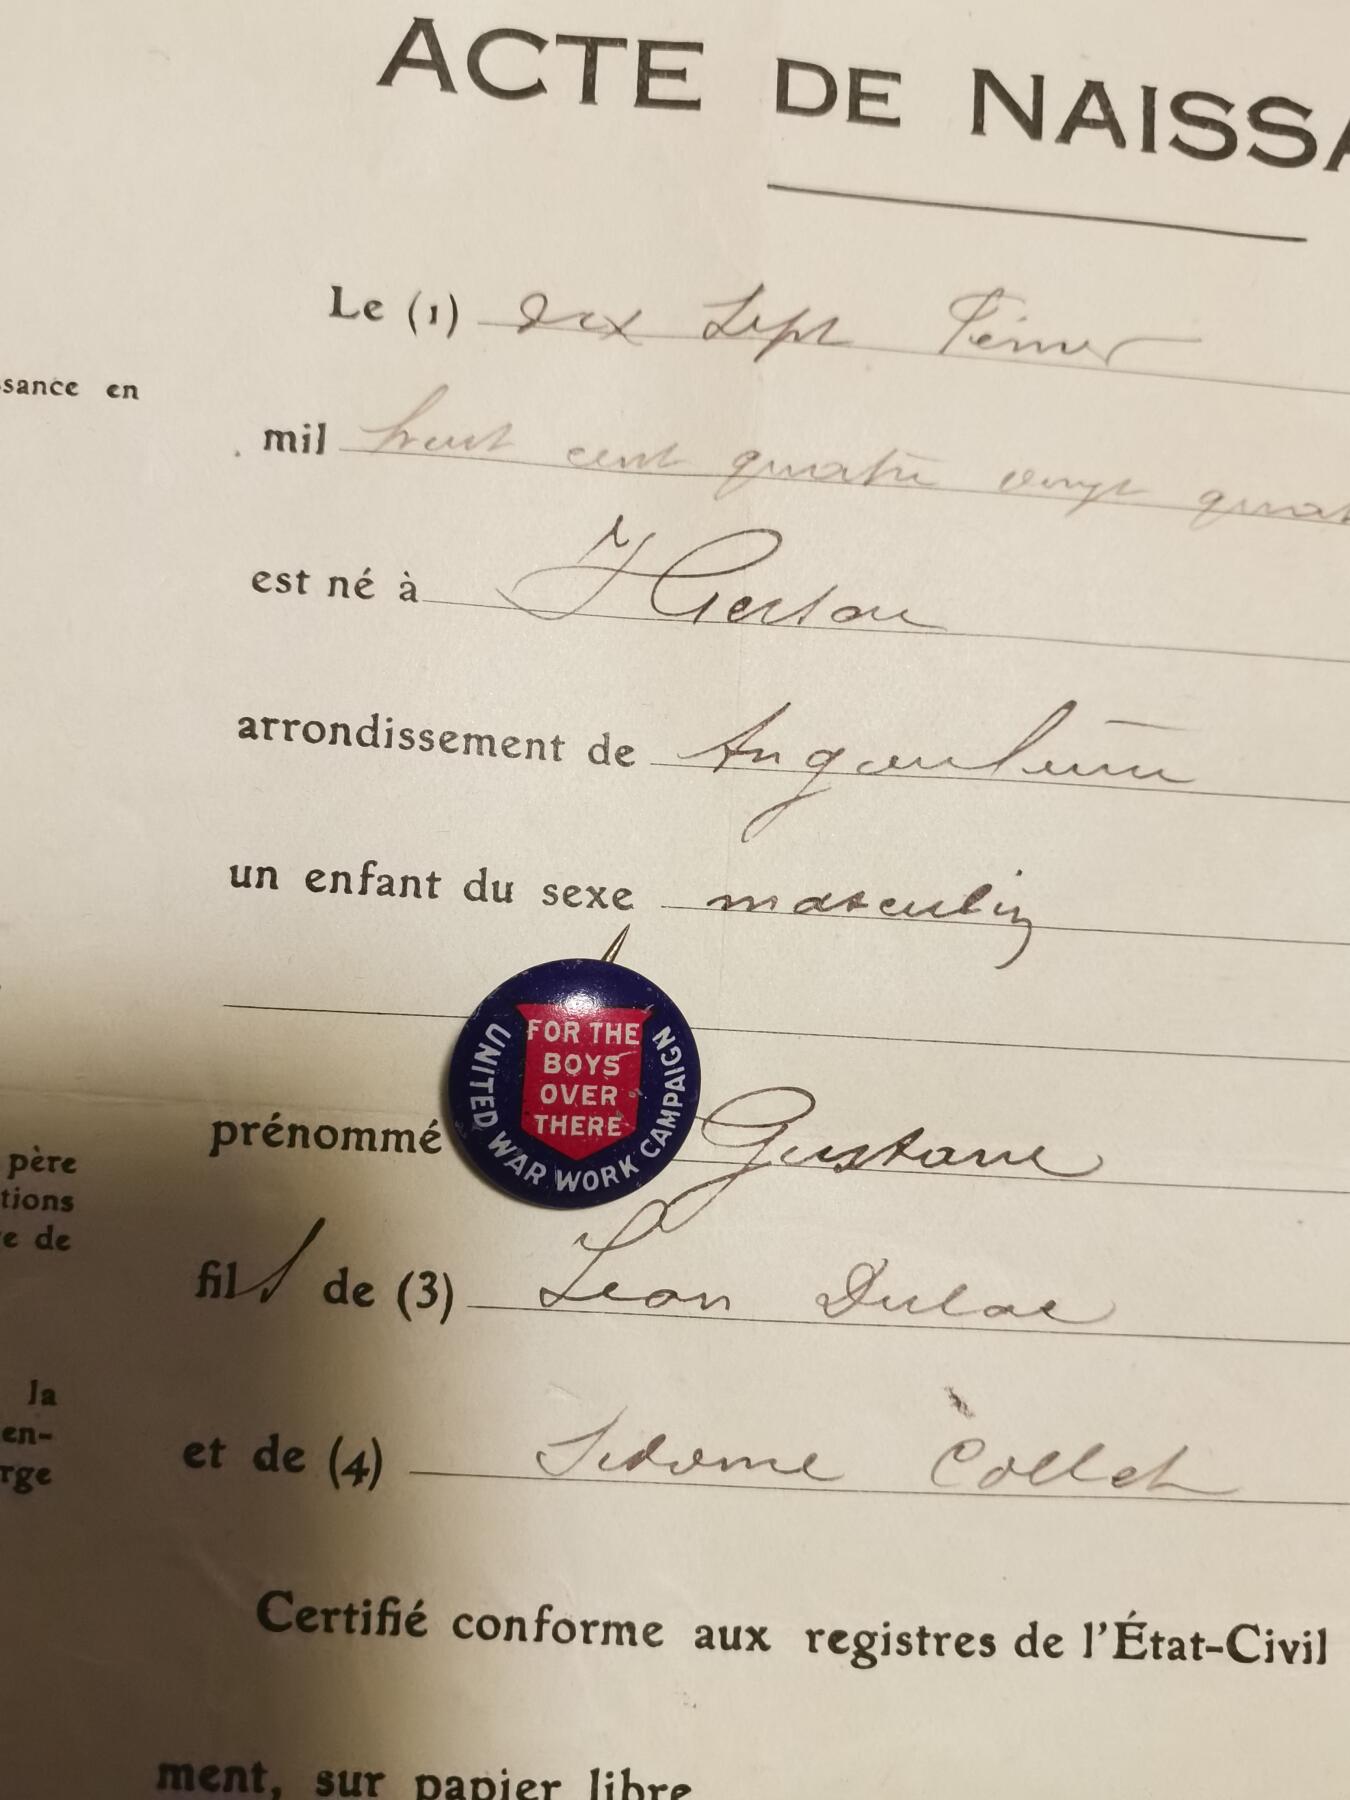 ACTE DE NAISSA
Le (1) dix sept Février
ssance en
mil huit cent quatre vingt quat
est né à
arrondissement de Angoulême
un enfant du sexe masculin
FOR THE
BOYS
OVER
THERE
UNITED WAR WORK CAMPAIGN
prénommé Gustave
père
tions
e de
fils de (3) Léon Dulac
la
en-
rge
et de (4) Collet
Certifié conforme aux registres de l'État-Civil
ment, sur papier libre